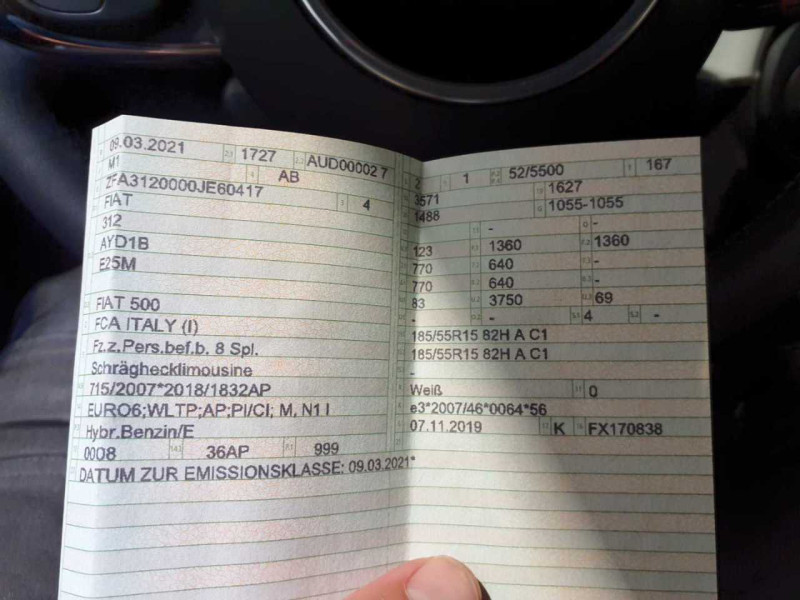 09.03.2021 1727 AUD000027
M1 AB
ZFA3120000JE60417
FIAT 4
312
AYD1B
E25M
FIAT 500
FCA ITALY (I)
Fz.z.Pers.bef.b. 8 Spl.
Schräghecklimousine
715/2007*2018/1832AP
EURO6;WLTP;AP;PI/CI; M, N1 I
Hybr.Benzin/E
0008 36AP 999
DATUM ZUR EMISSIONSKLASSE: 09.03.2021*
2 1 52/5500 167
3571 1627
1488 1055-1055
- -
123 1360 1360
770 640 -
770 640 -
83 3750 69
- - 4 -
185/55R15 82H A C1
185/55R15 82H A C1
-
Weiß 0
e3*2007/46*0064*56
07.11.2019 K FX170838